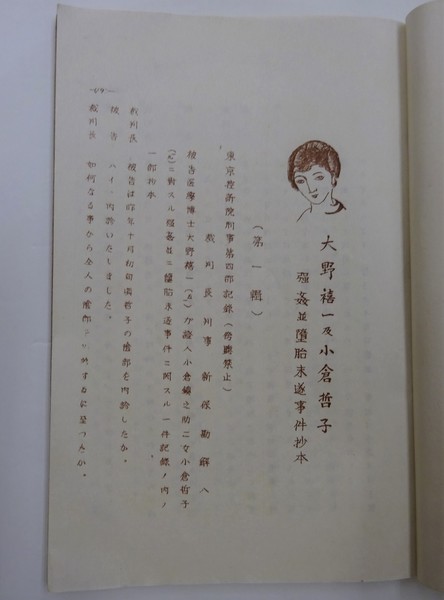 大野禧一及小倉哲子
強姦並堕胎未遂事件抄本
(第一輯)
裁判長判事 新保勘解人
東京控訴院刑事第四部記録(傍聴禁止)
被告医学博士大野禧一()が證人小倉鏡之助二女小倉哲子
()ニ對スル強姦並ニ堕胎未遂事件ニ関スル一件記録ノ内ノ
一部抄本
裁判長 被告は昨年十月初旬頃哲子の陰部を内診したか。
被告 ハイ、内診いたしました。
裁判長 如何なる事から本人の陰部を内診するに至つたか。